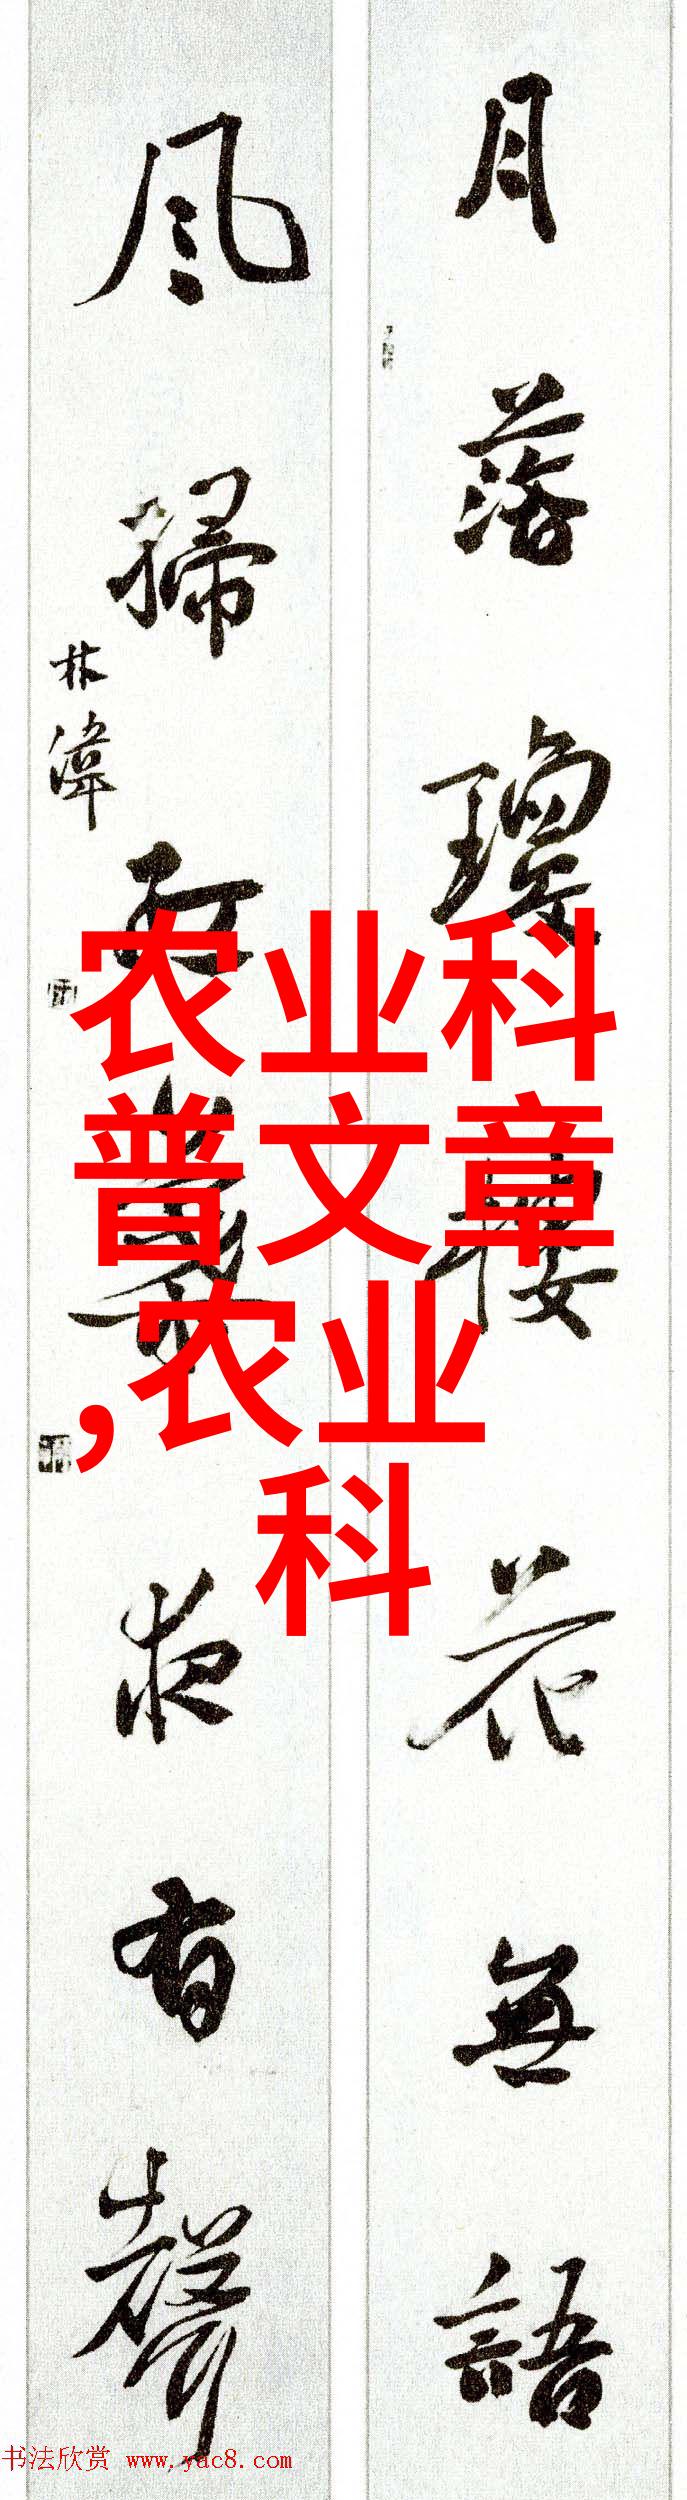 月落瓊樓花無語
風掃
夜有聲
林偉
农业科
普文章
,农业
科
书法欣赏 www.yac8.com